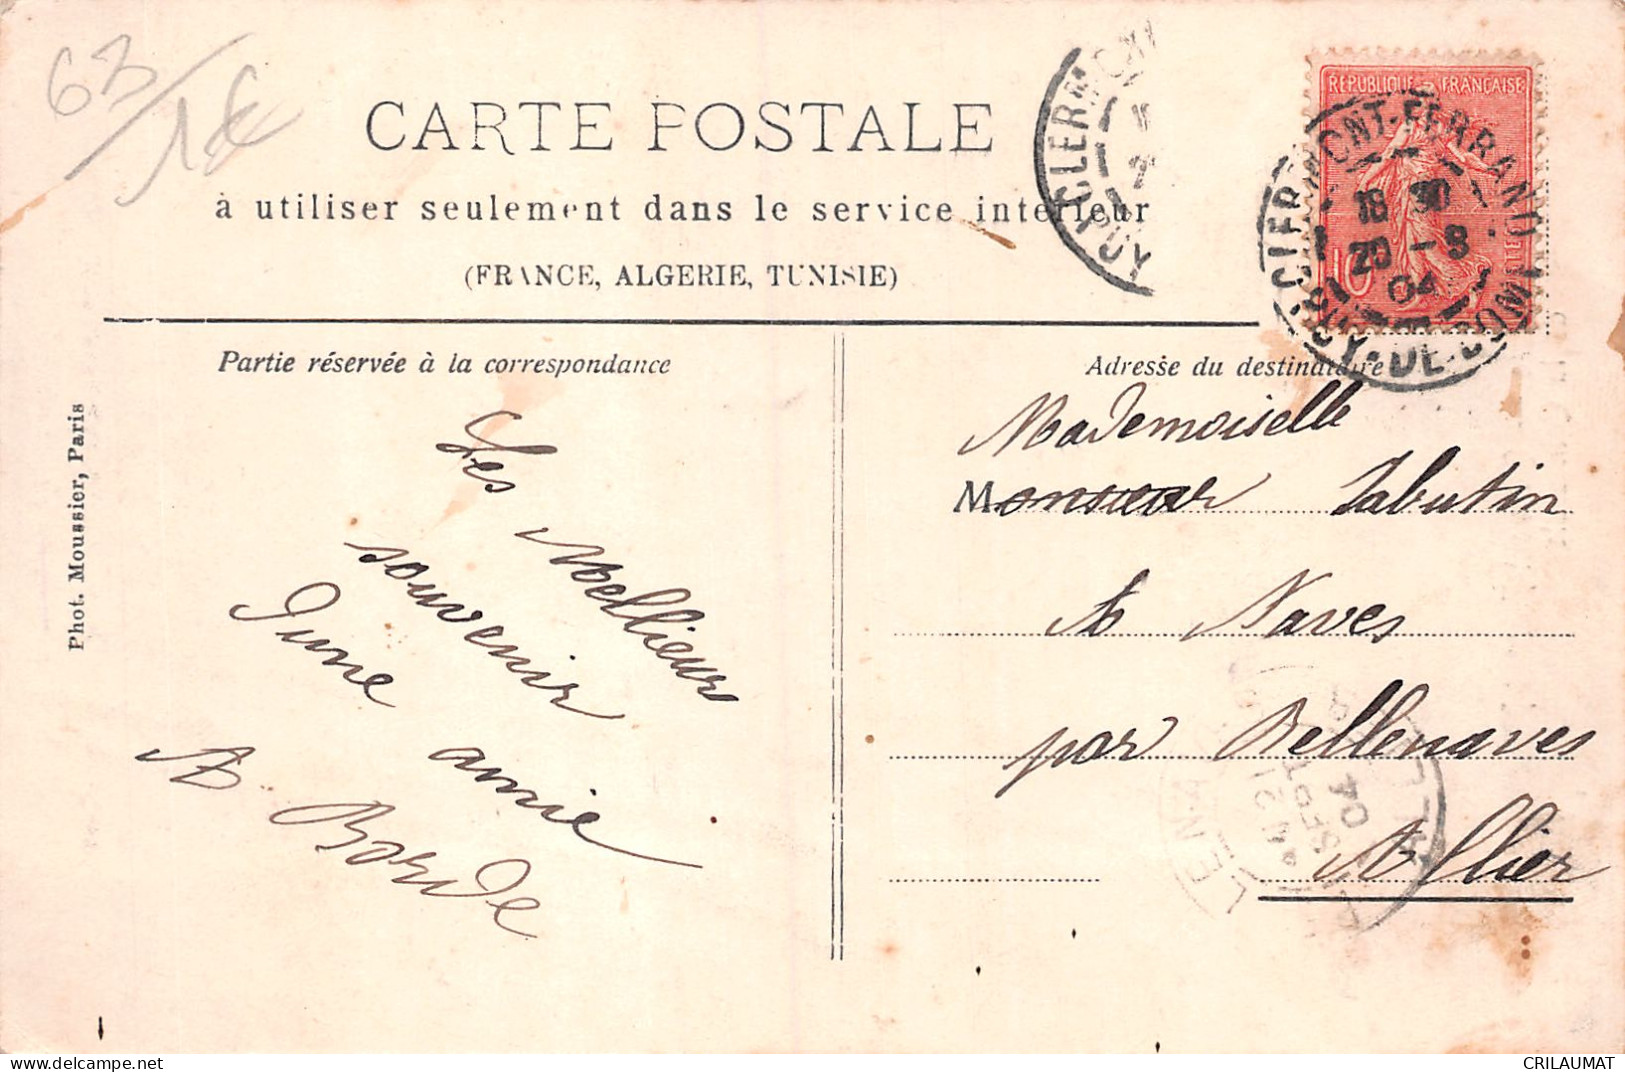 63/1€
CARTE POSTALE
à utiliser seulement dans le service intérieur
(FRANCE, ALGERIE, TUNISIE)
CLERMONT
PUY
REPUBLIQUE FRANÇAISE
10
POSTES
CLERMONT-FERRAND
18 30
20 - 9
04
PUY-DE-DOME
Partie réservée à la correspondance
Les Mellieurs
souvenir
d'une amie
A Borde
Phot. Moussier, Paris
Adresse du destinataire
Mademoiselle
Monsieur Tabutin
A Naves
par Bellenaves
Allier
21
SEPT
04
delcampe.net
CRILAUMAT